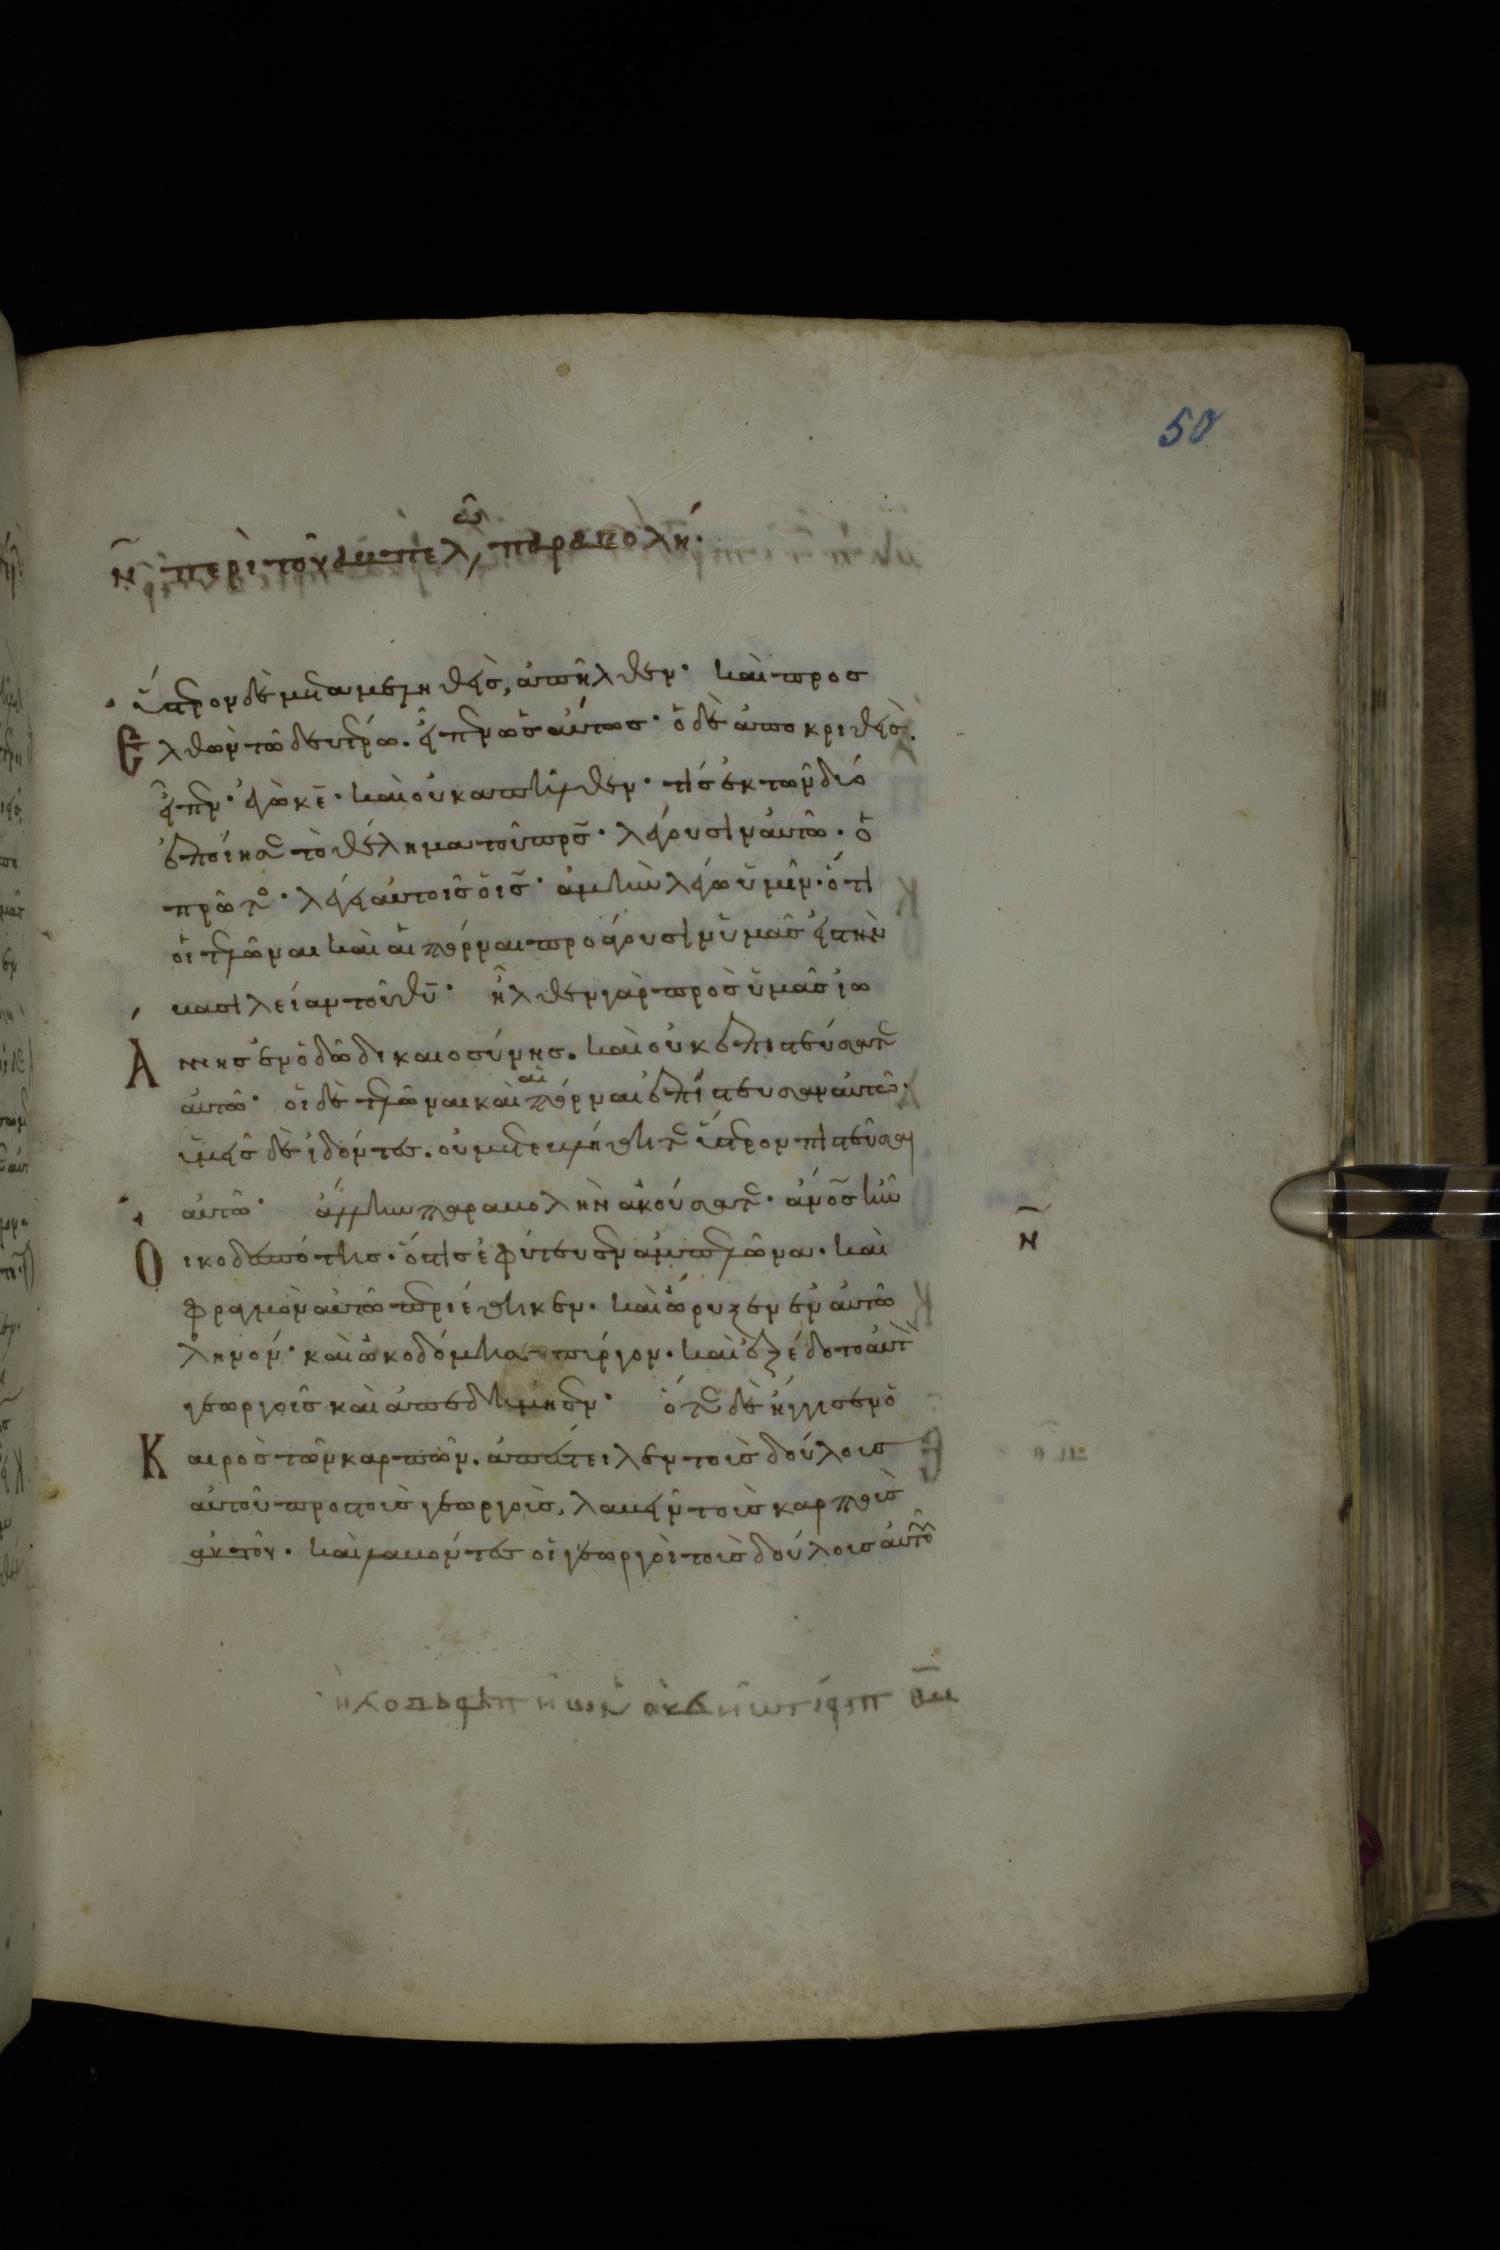 50
ν̅ περὶ τοῦ ἀμπελῶ, παραβολή·
ὕστερον δὲ μεταμεληθεὶς, ἀπῆλθεν· καὶ προσ
ελθὼν τῶ δευτέρω. εἶπεν ὡσαύτως· ὁ δὲ ἀποκριθεὶς.
εἶπεν· ἐγὼ κε̅· καὶ οὐκ ἀπῆλθεν· τίς ἐκ τῶν δύο
ἐποίησε τὸ θέλημα τοῦ πρ̅ς· λέγουσιν αὐτῶ· ὁ
πρῶτος· λέγει αὐτοῖς ὁ ις̅· ἀμὴν λέγω ὑμῖν· ὅτι
οἱ τελῶναι καὶ αἱ πόρναι προάγουσιν ὑμᾶς εἰς τὴν
βασιλείαν τοῦ θυ̅· ἦλθεν γὰρ πρὸς ὑμᾶς ἰω
άννης ἐν ὁδῶ δικαιοσύνης. καὶ οὐκ ἐπιστεύσατε
αὐτῶ· οἱ δὲ τελῶναι καὶ αἱ πόρναι ἐπίστευσαν αὐτῶ·
ὑμεῖς δὲ ἰδόντες. οὐ μετεμελήθητε ὕστερον πιστεῦσαι
αὐτῶ· ἄλλην παραβολὴν ἀκούσατε· ἀνο̅ς ἦν
οἰκοδεσπότης· ὅστις ἐφύτευσεν ἀμπελῶνα. καὶ
φραγμὸν αὐτῶ περιέθηκεν. καὶ ὤρυξεν ἐν αὐτῶ
ληνόν· καὶ ὠκοδόμησε πύργον. καὶ ἐξέδοτο αὐτὸν
γεωργοῖς καὶ ἀπεδήμησεν· ὅτε δὲ ἤγγισεν ὁ
καιρὸς τῶν καρπῶν. ἀπέστειλεν τοὺς δούλους
αὐτοῦ πρὸς τοὺς γεωργοὺς, λαβεῖν τοὺς καρποὺς
αὐτοῦ. καὶ λαβόντες οἱ γεωργοὶ τοὺς δούλους αὐτοῦ
ν̅